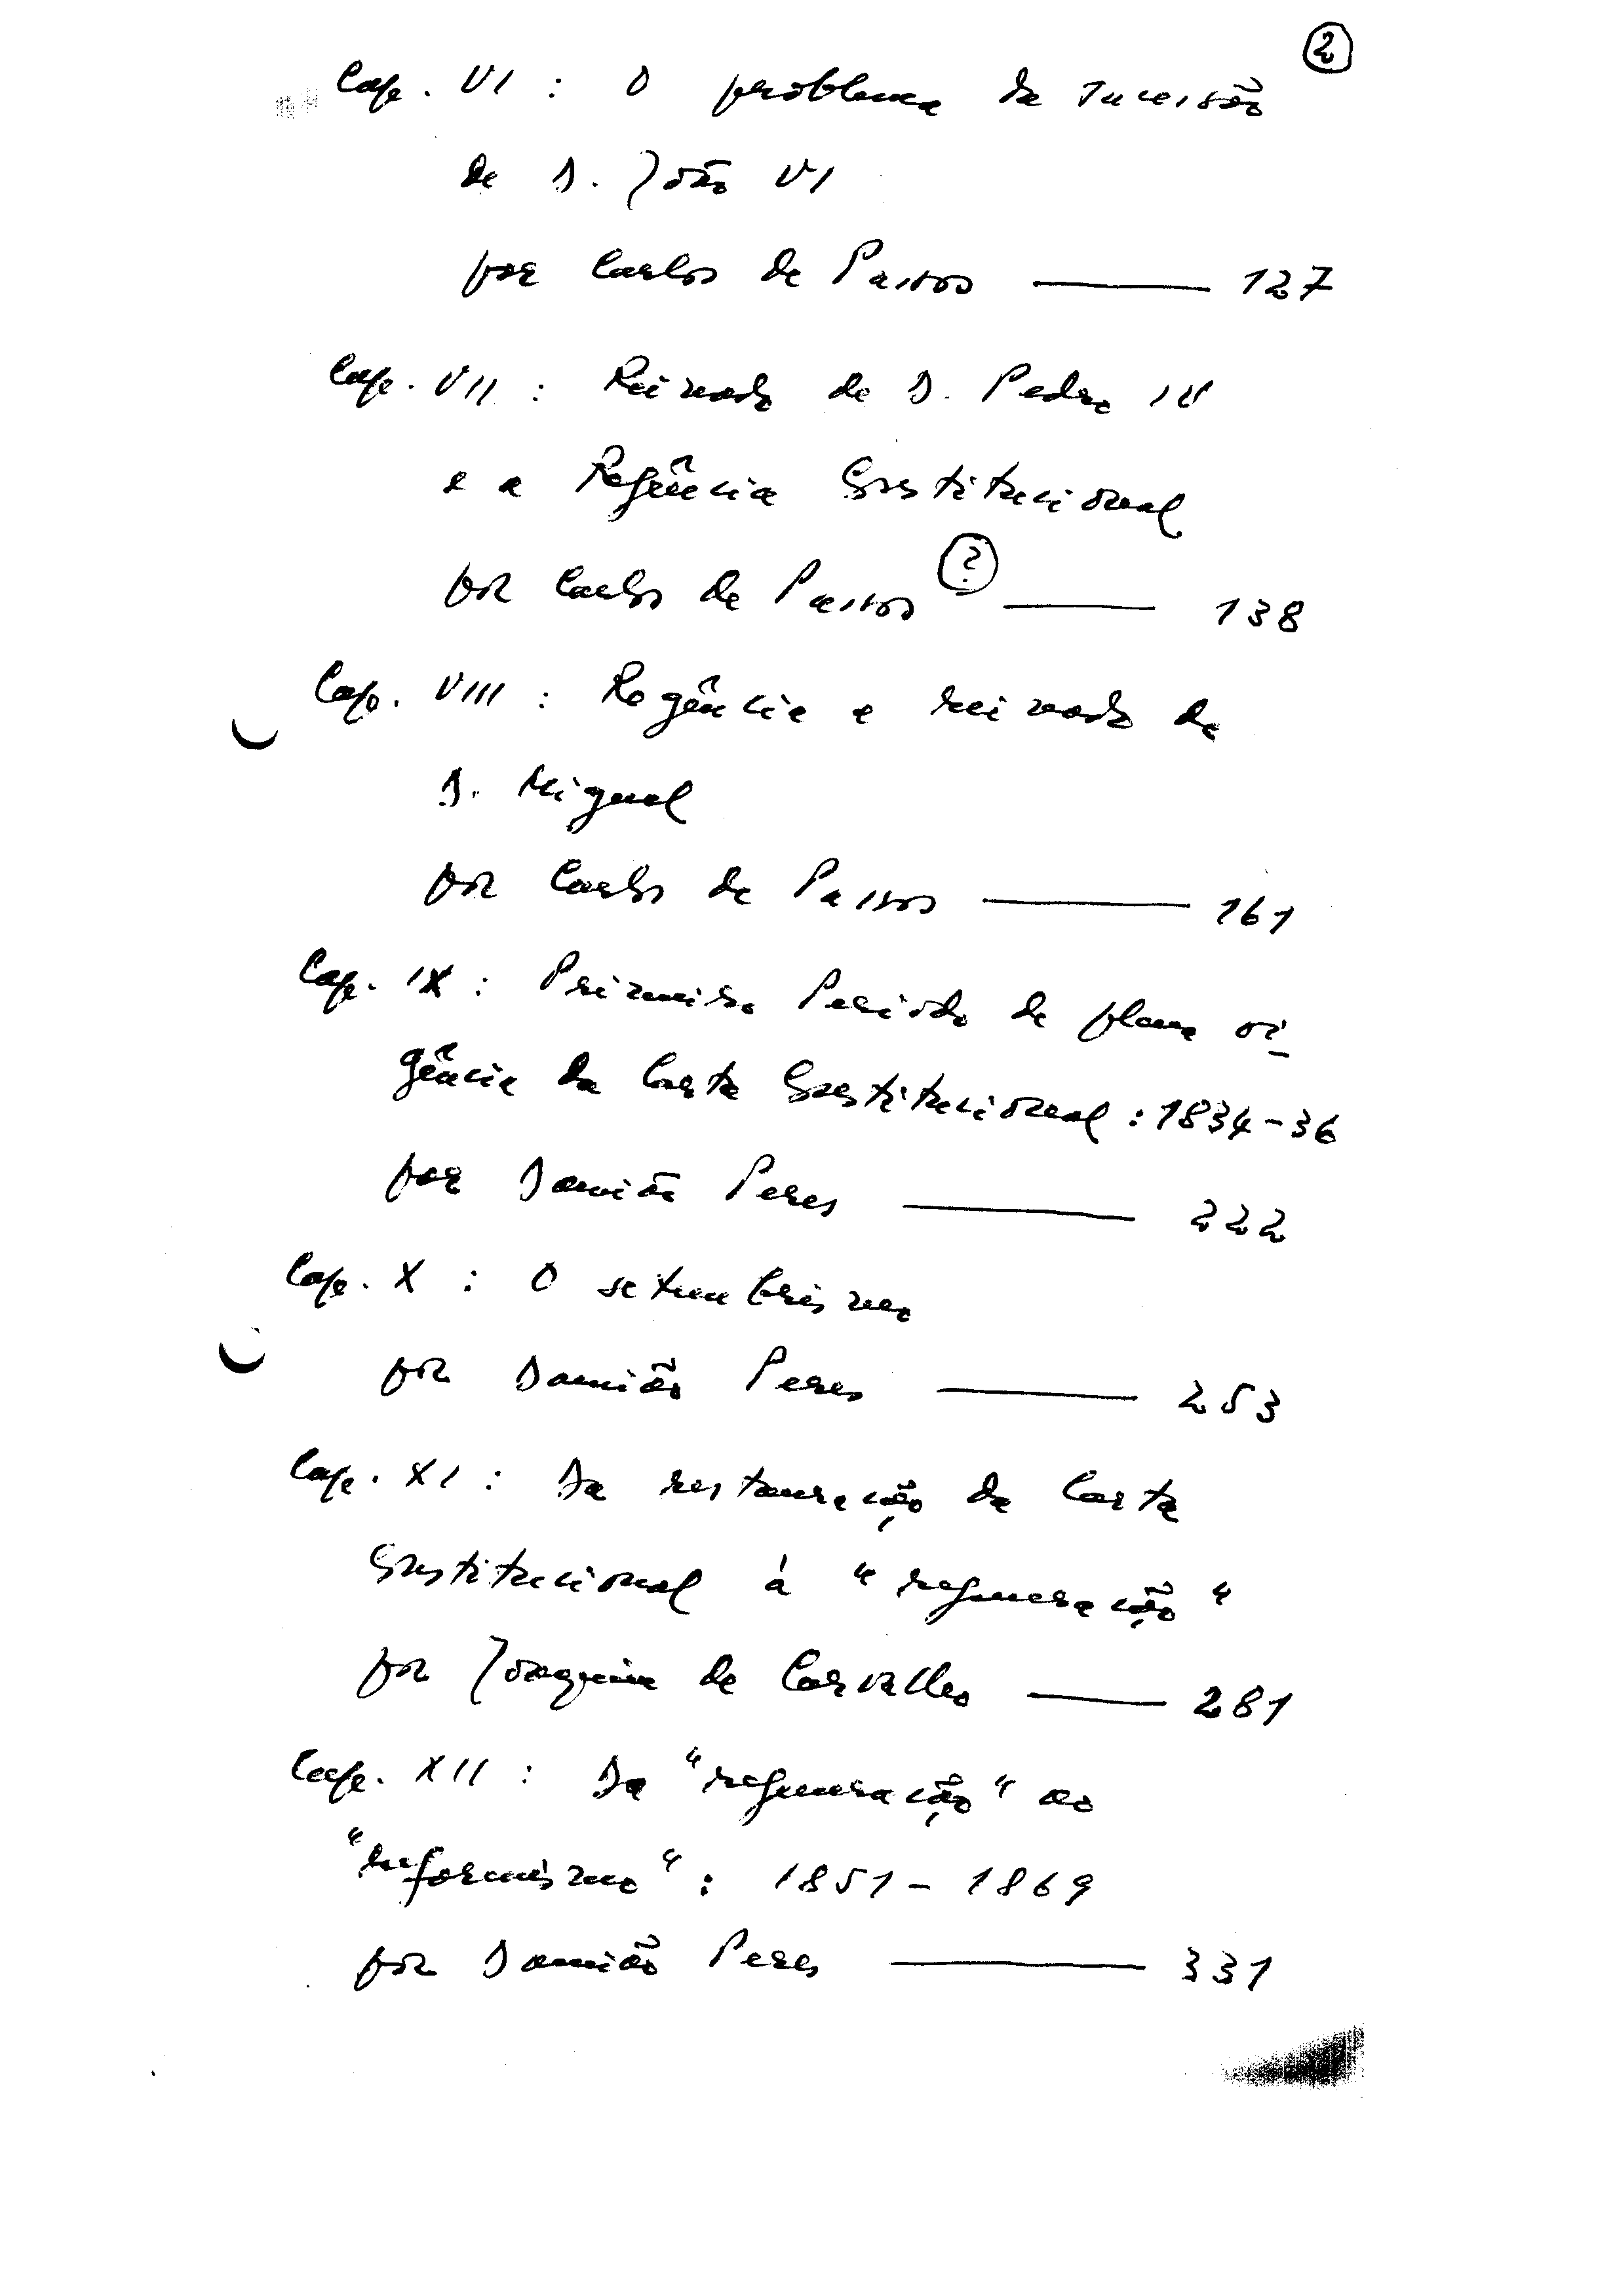 2
Cap. VI : O problema da sucessão
de D. João VI
por Carlos de Passos —— 127
Cap. VII : Reinado de D. Pedro IV
e a Regência Constitucional
por Carlos de Passos (?) —— 138
Cap. VIII : Regência e reinado de
D. Miguel
por Carlos de Passos —— 161
Cap. IX : Primeiro Período de plena vi-
gência da Carta Constitucional : 1834-36
por Damião Peres —— 222
Cap. X : O setembrismo
por Damião Peres —— 253
Cap. XI : Da restauração da Carta
Constitucional à "regeneração"
por Joaquim de Carvalho —— 281
Cap. XII : Da "regeneração" ao
"reformismo" : 1851 - 1869
por Damião Peres —— 331